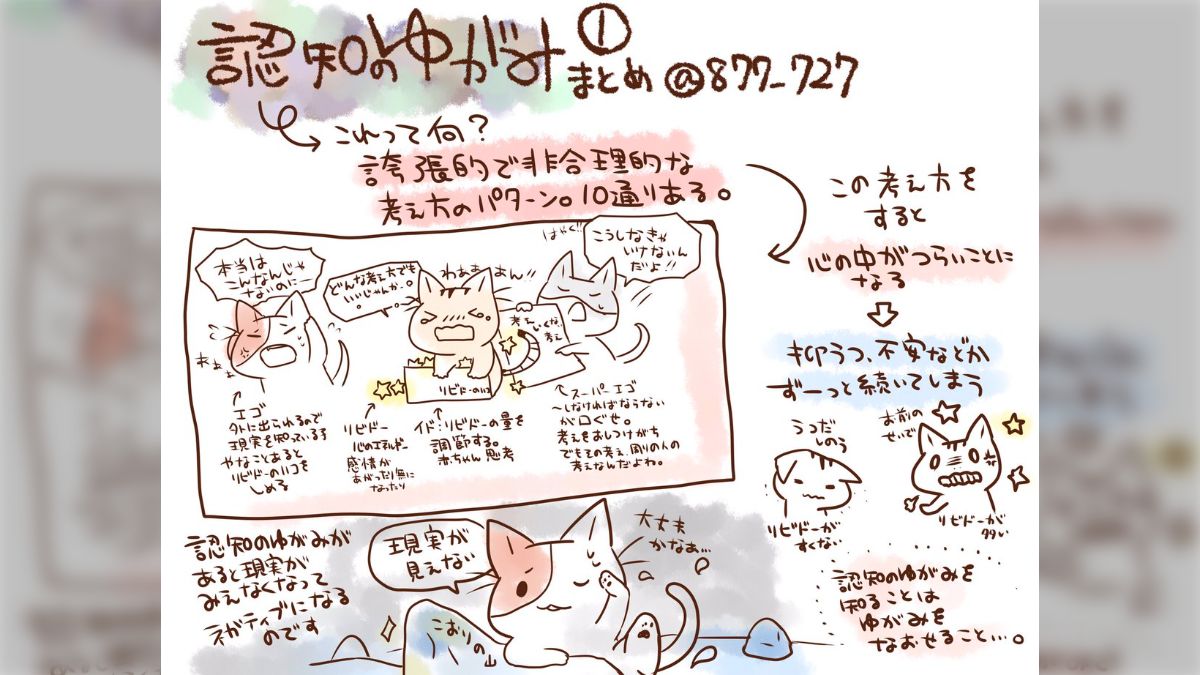 認知のゆがみ①
まとめ @877_727
これって何?
誇張的で非合理的な
考え方のパターン。10通りある。
この考え方を
すると
心の中がつらいことに
なる
抑うつ、不安などが
ずーっと続いてしまう
うつだ
しのう
リビドーが
すくない
お前の
せいで
リビドーが
多い
本当は
こんなんじゃ
ないのにー
あぁぁ
どんな考え方でも
いいじゃんかー。
わああーん!!
はやく!!
こうしなきゃ
いけないん
だよ!!
リビドーのハコ
エゴ
外に出られるので
現実を知っている
やなことあると
リビドーのハコを
しめる
リビドー
心のエネルギー
感情が
あがったり無に
なったり
イド:リビドーの量を
調節する。
赤ちゃん思考
スーパーエゴ
~しなければならない
が口ぐせ。
考えをおしつけがち
でもその考え、周りの人の
考えなんだよね。
認知のゆがみが
あると現実が
みえなくなって
ネガティブになる
のです
現実が
見えない
大丈夫
かなぁ…
こおりの山
認知のゆがみを
知ることは
ゆがみを
なおせること…。